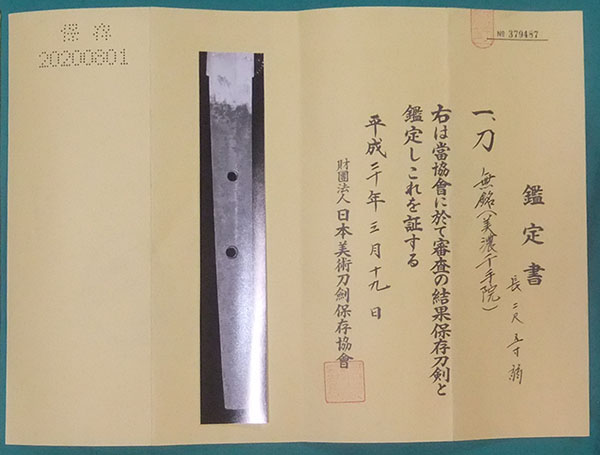 № 379487
鑑定書
一、刀 無銘(美濃千手院)
長二尺五寸弱
右は當協會に於て審査の結果保存刀剣と
鑑定しこれを証する
平成三十年三月十九日
財團法人 日本美術刀劍保存協會
保存
20200801